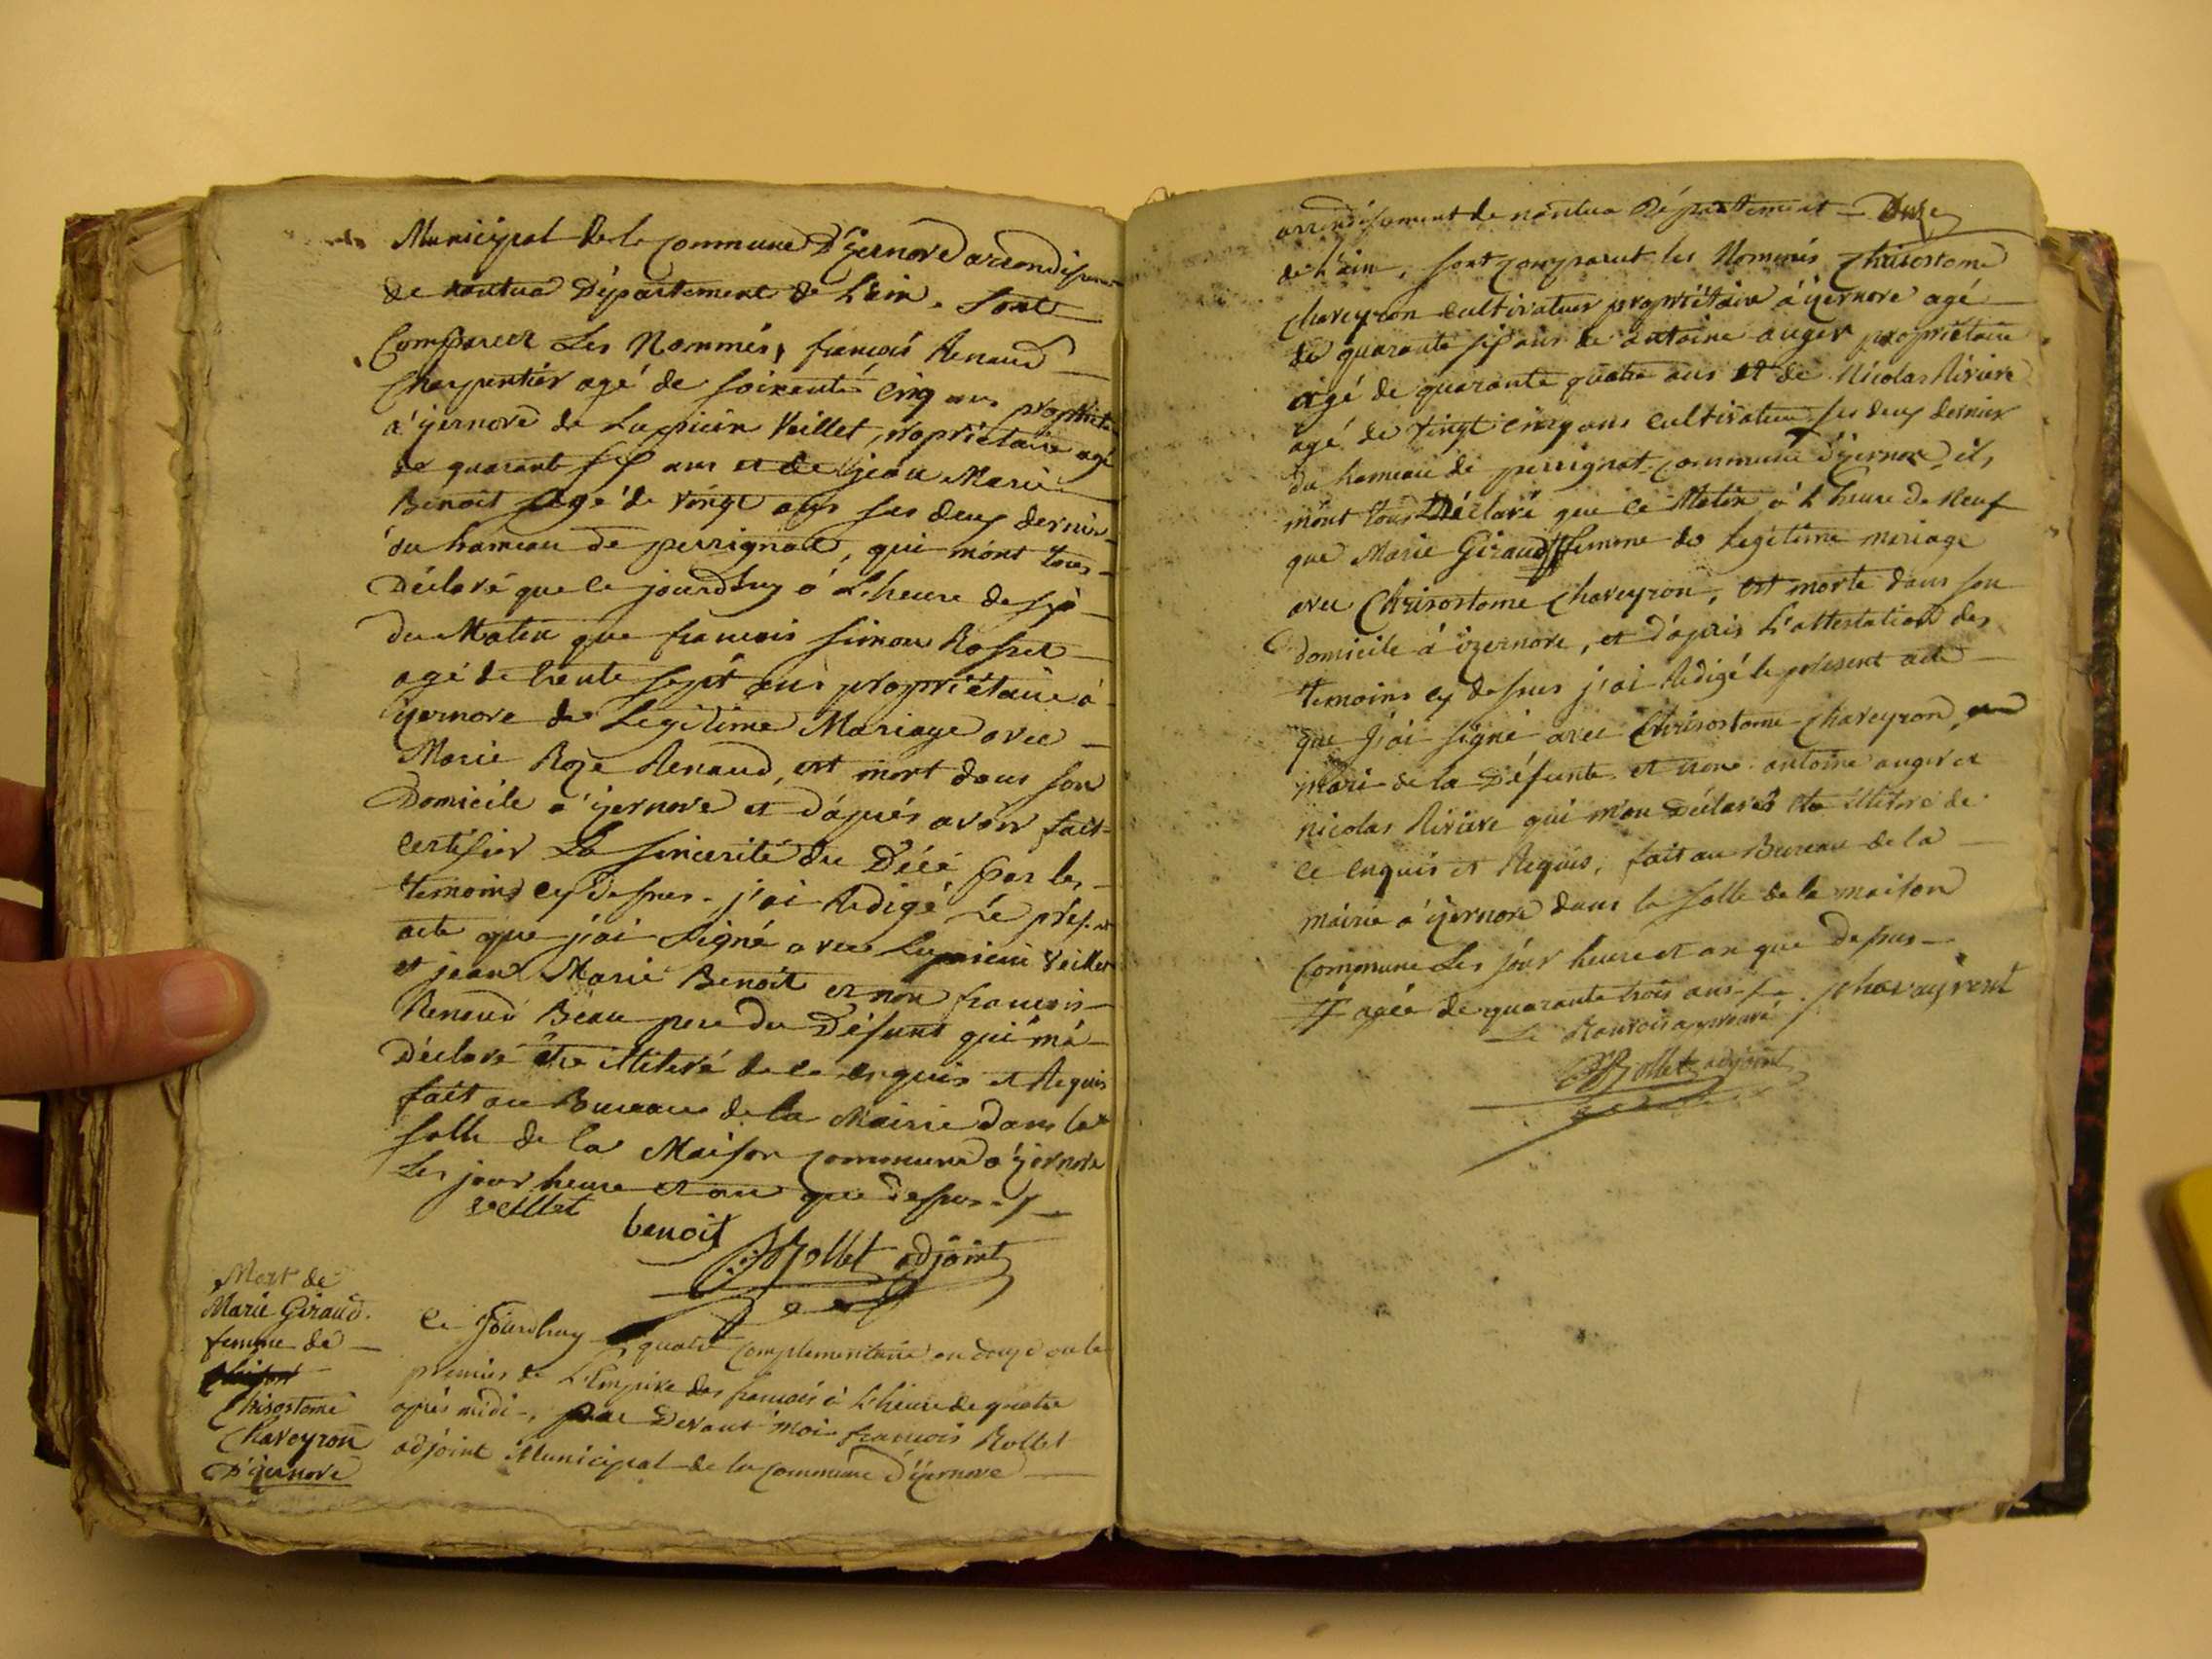 Municipal de la commune d'yzernore arrondissem
de nantua Département de L'ain. Sont
Comparut Les Nommés, francois Renaud
Charpentier agé de soixante Cinq ans propriéta
a yzernore de Lupicin Veillet, propriétaire agé
de quarante six ans et de jean Marie
Benoit agé de vingt ans ses deux dernier
du hameau de perrignat, qui mont tous
Déclaré que ce jourdhuy à L'heure de
du Matin que francois simon Rosset
agé de trente sept ans propriétaire à
yzernore de Legitime Mariage avec
Marie Roze Renaud, est mort dans son
Domicile a yzernore et d'aprés avoir fait
certifier La sincerité du Décé par les
temoins cy dessus. j'ai Redigé Le présent
acte que j'ai signé avec Lupicin Veillet
et jean Marie Benoit et non francois
Renaud Beau pere du Défunt qui m'à
Déclaré être illiteré de ce enquis et Requis
fait au Bureau de la Mairie dans la
salle de la Maison commune a yzernore
Les jour heure et an que dessus
veillet
benoit
Rollet adjoint
Mort de
Marie Giraud
femme de
Chrisostome
Chaveyron
D'yzernore
Ce Jourdhuy quatre complementaire an douze ou le
premier de L'Empire des francais à L'heure de quatre
aprés midi, par Devant moi francois Rollet
adjoint Municipal de la commune d'yzernore
arrondissement de nantua Département
de L'ain, sont comparut les Nommés Chrisostome
Chaveyron cultivateur propriétaire à yzernore agé
de quarante six ans de antoine auger propriétaire
agé de quarante quatre ans et de Nicolas Riviere
agé de vingt cinq ans cultivateur ses deux dernier
du hameau de perrignat commune d'yzernore, ils
mont tous Déclaré que ce Matin à L'heure de Neuf
que Marie Giraud # femme de Legitime mariage
avec Chrisostome Chaveyron, est morte dans son
domicile à izernore, et d'aprés L'attestation des
temoins cy dessus j'ai Redigé le présent acte
que J'ai signé avec Chrisostome Chaveyron
mari de la Défunte et non antoine auger et
nicolas Riviere qui m'on Déclarés être illiteré de
ce enquis et Requis, fait au Bureau de la
mairie à yzernore dans la salle de la maison
commune Les jour heure et an que dessus
# agée de quarante trois ans chavayront
Le Ranvois approuvé
Rollet adjoint